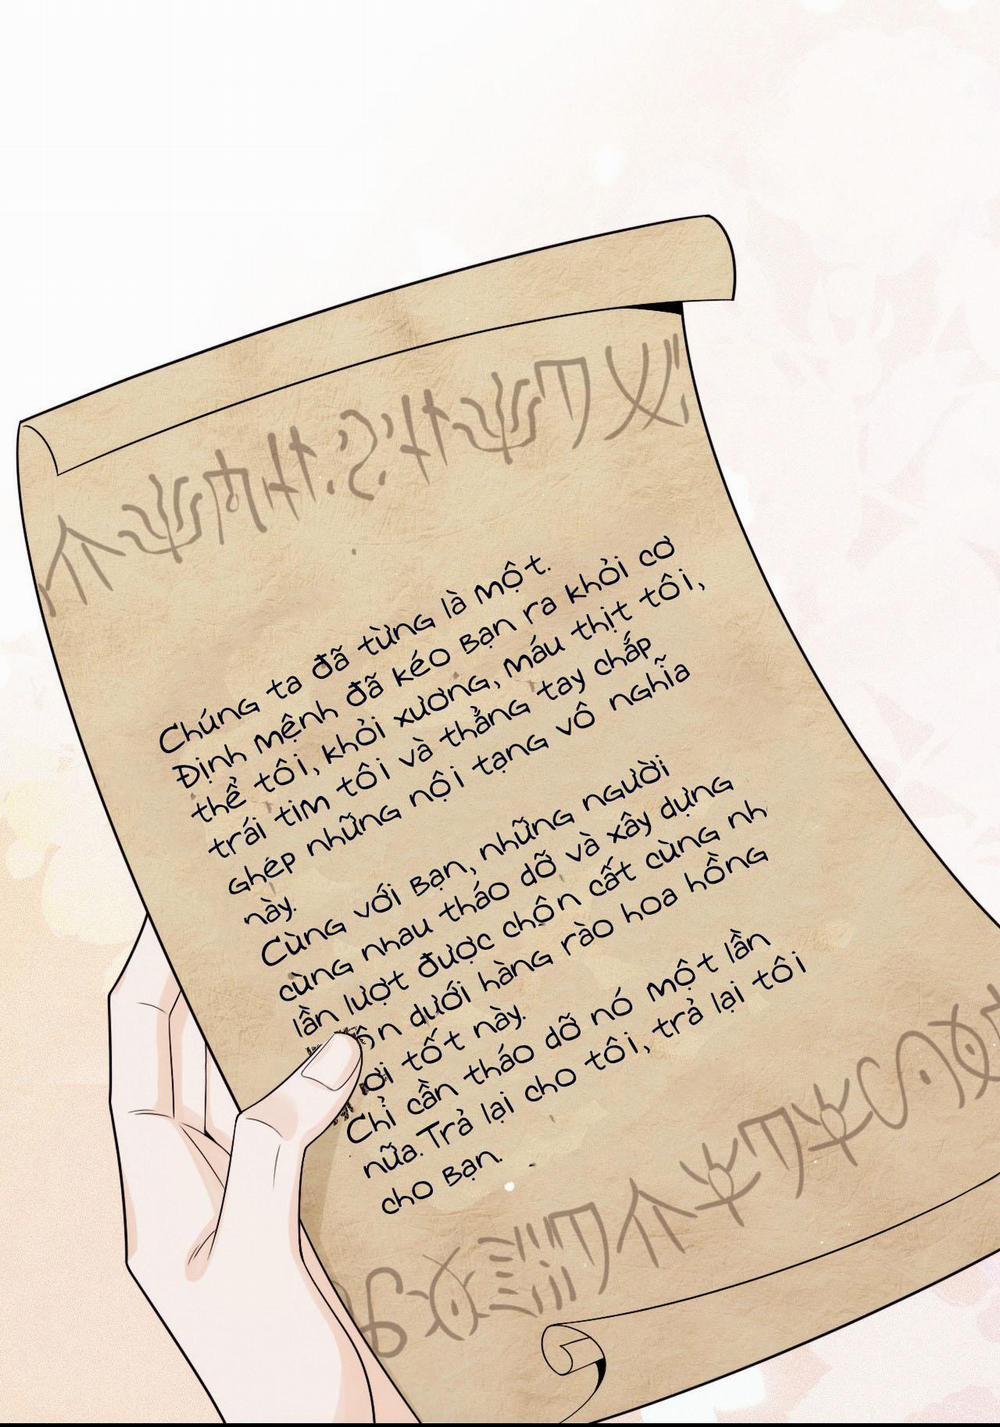 Chúng ta đã từng là một.
Định mệnh đã kéo bạn ra khỏi cơ
thể tôi, khỏi xương, máu thịt tôi,
trái tim tôi và thẳng tay chắp
ghép những nội tạng vô nghĩa
này.
Cùng với bạn, những người
cùng nhau tháo dỡ và xây dựng
lần lượt được chôn cất cùng nh
dưới hàng rào hoa hồng
tốt này.
Chỉ cần tháo dỡ nó một lần
nữa. Trả lại cho tôi, trả lại tôi
cho bạn.